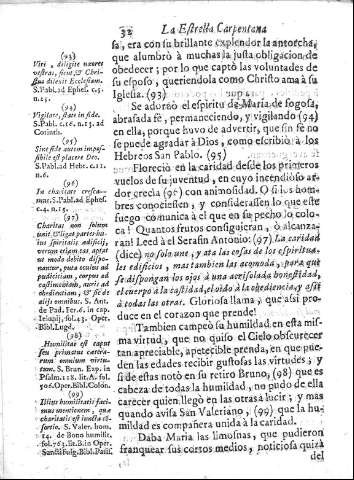 32
La Estrella Carpentana
(93)
Viri, diligite uxores
vestras, sicut, & Chri-
stus dilexit Ecclesiam.
S. Pabl. ad Ephes. c. 5.
n. 25.
(94)
Vigilate, state in fide.
S. Pabl. c. 16. n. 13. ad
Corinth.
(95)
Sine fide autem impos-
sibile est placere Deo.
S. Pabl. ad Hebr. c. 11.
n. 6.
(96)
In charitate cresca-
mus. S. Pabl. ad Ephes.
c. 4. n. 15.
(97)
Charitas non solum
unit, & ligat parietes
spiritualis aedificij,
verum etiam eos aptat
modo debito dispo-
nantur, puta oculos ad
pudicitiam, corpus ad
castimoniam, aures ad
obedientiam, & sic de
alijs omnibus. S. Ant.
de Pad. Fer. 6. in cap.
fol. 43. Oper.
Bibl. Lugd.
(98)
Humilitas est caput
seu primatus caetera-
rum omnium virtu-
tum. S. Brun. Exp. in
Psalm. 118. lit. A. fol.
506. Oper. Bibl. Colon.
(99)
Illius humilitatis faci-
mus mentionem, qua
charitatis est iuncta co-
S. Valer. hom.
14. de Bono humilit.
fol. 763. lit. B. in Oper.
Sancti Fulg. Bibl. Paris.
sa, era con su brillante explendor la antorcha,
que alumbrò à muchas la justa obligacion de
obedecer; por lo que captò las voluntades de
su esposo, queriendola como Christo ama à su
Iglesia. (93)
Se adornò el espiritu de Maria de fogosa,
abrasada fè, permaneciendo, y vigilando (94)
en ella, porque huvo de advertir, que sin fè no
se puede agradar à Dios, como escribiò à los
Hebreos San Pablo. (95)
Floreciò en la caridad desde los primeros
vuelos de su juventud, en cuyo incendioso ar-
dor crecia (96) con animosidad. O si los hom-
bres conociessen, y considerassen lo que este
fuego comunica à el que en su pecho lo colo-
ca! Quantos frutos consiguieran, ò alcanza-
ran! Leed à el Serafin Antonio: (97) La caridad
(dice) no solo une, y ata las casas de los espiritua-
les edificios, mas tambien las acomoda, para que
se dispongan los ojos à una acrisolada honestidad,
el cuerpo à la castidad, el oìdo à la obediencia, y assi
à todas las otras. Gloriosa llama, que assi pro-
duce en el corazon que prende!
Tambien campeò su humildad en esta mis-
ma virtud, que no quiso el Cielo obscurecer
tan apreciable, apetecible prenda, en que pue-
den las edades recibir gustosas las virtudes; y
si de estas notò en su retiro Bruno, (98) que es
cabeza de todas la humildad, no pudo de ella
carecer quien llegò en las otras à lucir; y mas
quando avisa San Valeriano, (99) que la hu-
mildad es compañera unida à la caridad.
Daba Maria las limosnas, que pudieron
franquear sus cortos medios, noticiosa quizà
del